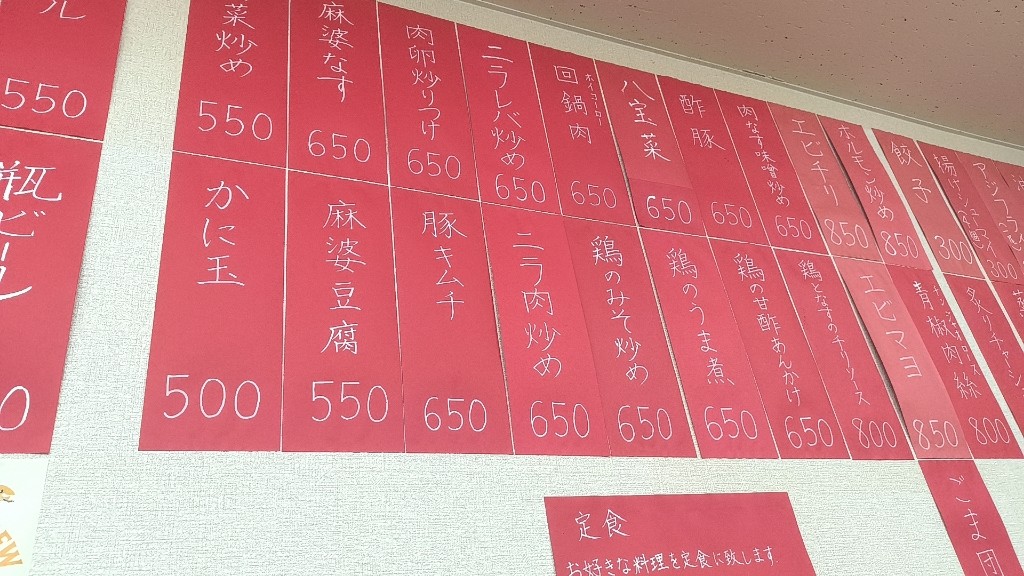 ル
550
瓶ビール
0
菜炒め
550
麻婆なす
650
肉卵炒りつけ
650
ニラレバ炒め
650
回鍋肉
ホイコーロー
650
八宝菜
650
酢豚
650
肉なす味噌炒め
650
エビチリ
850
ホルモン炒め
850
餃子
300
かに玉
500
麻婆豆腐
550
豚キムチ
650
ニラ肉炒め
650
鶏のみそ炒め
650
鶏のうま煮
650
鶏の甘酢あんかけ
650
鶏となすのチリソース
800
エビマヨ
850
青椒肉絲
800
ごま団
定食
お好きな料理を定食に致します
EW